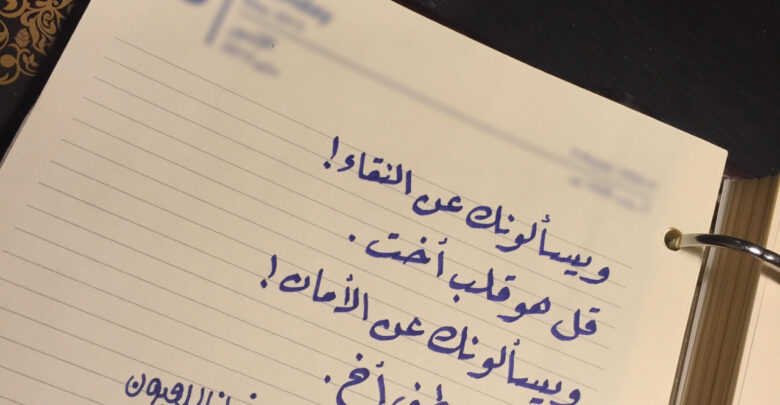 ويسألونك عن النقاء!
قل هو قلب أخت.
ويسألونك عن الأمان!
أخ.